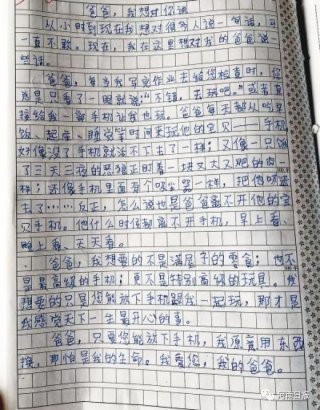 爸爸，我想对你说
从小时到现在我想对很多人说一句话，可
一直不敢。现在，我在这里想对我的爸爸说
爸爸，每当我写完作业去给您检查时，您
总是只看了一眼就说："不错，去玩吧。"或者直
接给我一部手机让我也玩。爸爸每天都从吃早
饭、起床、睡觉等时间来玩他的宝贝——手机
好像没了手机就活不下去了一样；又像一只饿
了三天三夜的恶狼正盯着一块又大又肥的肉一
样；还像手机里面有个吸尘器一样，把他吸进
去了……反正，怎么说也是爸爸离不开他的宝
贝手机。他什么时候都离不开手机，早上看、
晚上看、天天看。
爸爸，我想要的不是满屋子的零食；也不
是最高级的手机；更不是特别高级的玩具。我
想要的只是您能放下手机跟我一起玩，那才是
我感觉天下一生最开心的事。
爸爸，只要您能放下手机，我愿意用东西
换，那怕是我的生命。我爱您，我的爸爸。